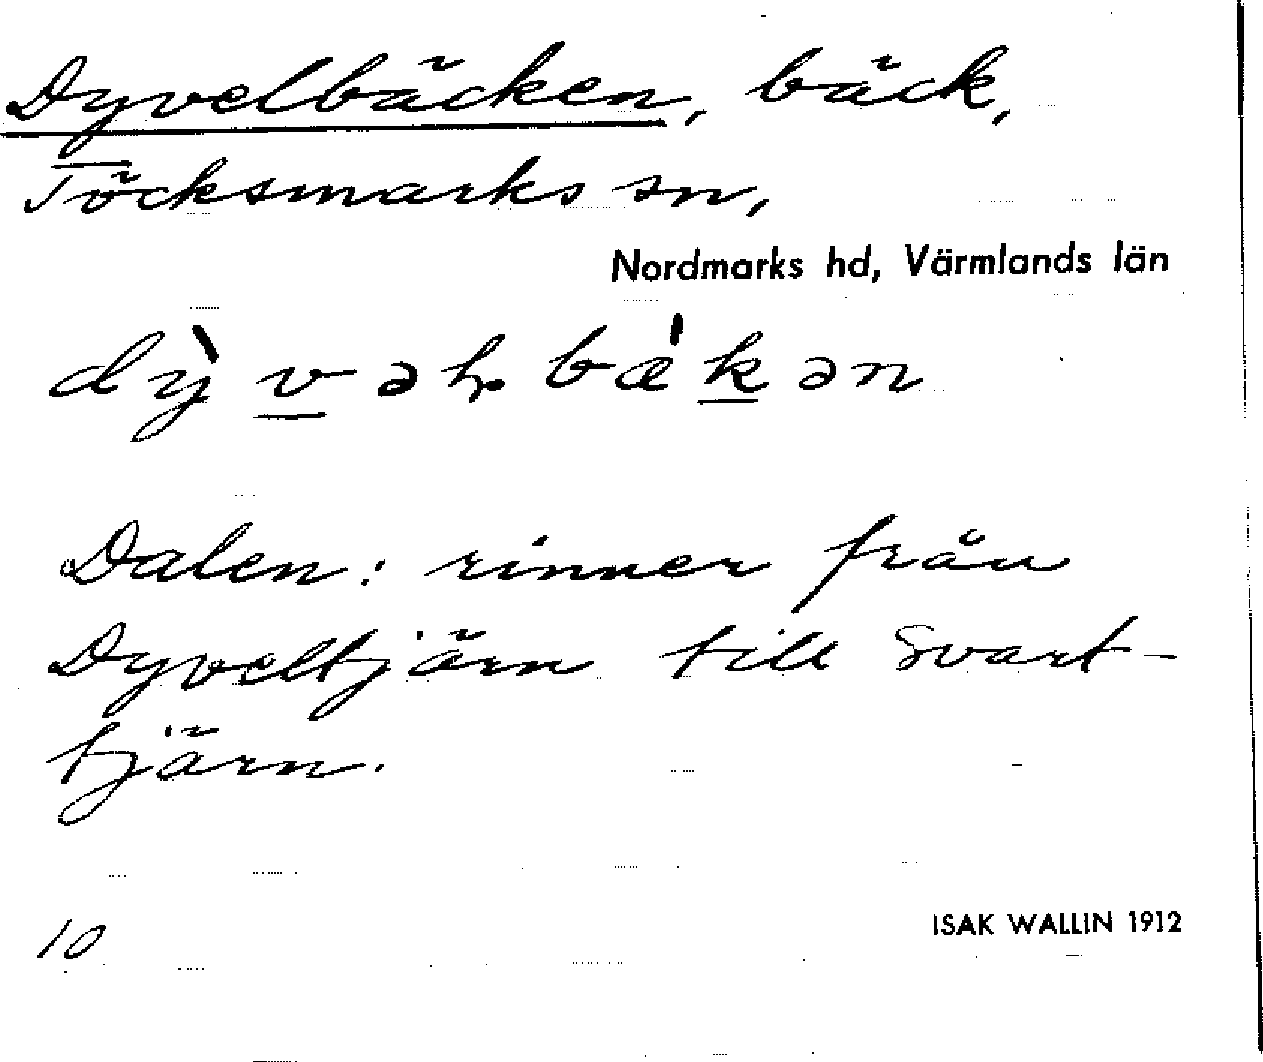 Dyvelbäcken, bäck,
Töcksmarks sn,
Nordmarks hd, Värmlands län
dỳvəꞎbæ̀kən
Dalen: rinner från
Dyveltjärn till Svart-
tjärn.
10
ISAK WALLIN 1912